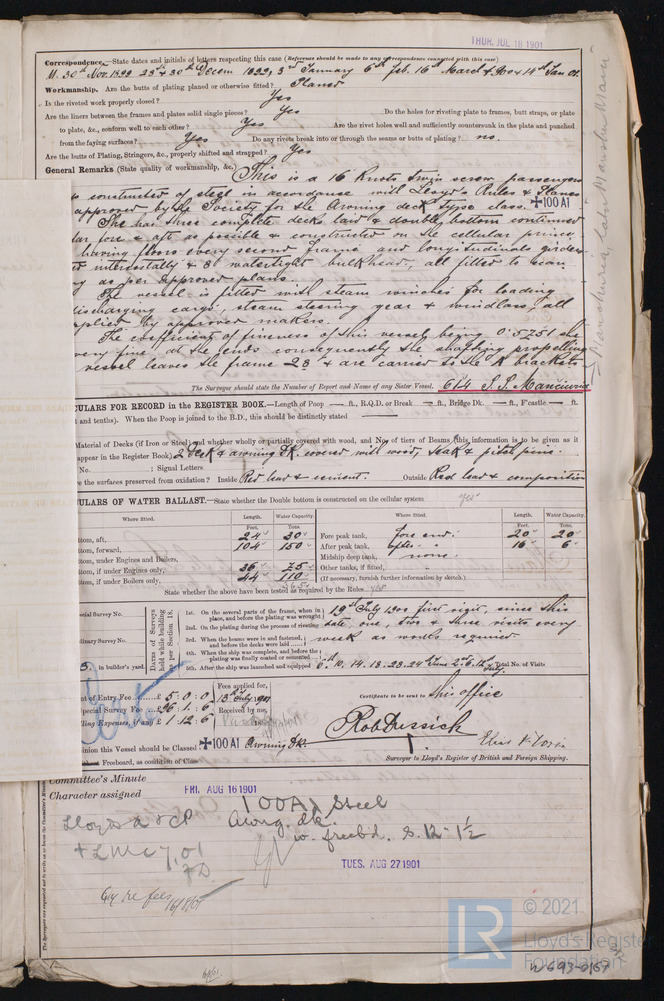 THUR. JUL 18 1901
Correspondence.—State dates and initials of letters respecting this case (Reference should be made to any correspondence connected with this case)
M. 30th Nov. 1899 23rd & 30th Decem 1899, 3rd January 6th Feb. 16th March & 14th Jan 01.
Workmanship. Are the butts of plating planed or otherwise fitted? Planed
Is the riveted work properly closed? Yes
Are the liners between the frames and plates solid single pieces? Yes Do the holes for riveting plate to frames, butt straps, or plate
to plate, &c., conform well to each other? Yes Are the rivet holes well and sufficiently countersunk in the plate and punched
from the faying surfaces? Yes Do any rivets break into or through the seams or butts of plating? no.
Are the butts of Plating, Stringers, &c., properly shifted and strapped? Yes
General Remarks (State quality of workmanship, &c.) This is a 16 Knots twin screw passengers
constructed of steel in accordance with Lloyd's Rules & Plans
approved by the Society for the Awning deck type class. ✠100 A1
She has three complete decks laid & double bottom continued
far fore & aft as possible & constructed on the cellular princ.
having floors every second frame and longitudinals girders
intercostally & 8 watertight bulkhead, all fitted to
as per approved plans.
The vessel is fitted with steam winches for loading
discharging cargo, steam steering gear & windlass, all
supplied by approved makers.
The coefficient of fineness of this vessel being 0.5751 she
very fine at the ends consequently the shafting propelling
vessel leaves the frame 23 & are carried to the A brackets
The Surveyor should state the Number of Report and Name of any Sister Vessel. 614 S.S. Manciuria
ULARS FOR RECORD in the REGISTER BOOK.—Length of Poop — ft., R.Q.D. or Break — ft., Bridge Dk. — ft., F'castle — ft.
t and tenths). When the Poop is joined to the B.D., this should be distinctly stated
Material of Decks (if Iron or Steel) and whether wholly or partially covered with wood, and No. of tiers of Beams (this information is to be given as it
appear in the Register Book) 2 Deck & awning Dk. covered with wood, teak & pitch pine.
No. ; Signal Letters
e the surfaces preserved from oxidation? Inside Red lead & cement. Outside Red lead & composition
ULARS OF WATER BALLAST.—State whether the Double bottom is constructed on the cellular system yes
Where fitted. Length. Water Capacity. Where fitted. Length. Water Capacity.
Feet. Tons. Feet. Tons.
tom, aft, 24 30 Fore peak tank, fore end. 20 20
tom, forward, 104 150 After peak tank, after. 16 6
tom, under Engines and Boilers, Midship deep tank, none.
tom, if under Engines only, 36 75 Other tanks, if fitted,
tom, if under Boilers only, 44 110 (If necessary, furnish further information by sketch.)
365
State whether the above have been tested as required by the Rules yes
cial Survey No.
dinary Survey No.
5. in builder's yard.
Dates of Surveys held while building as per Section 18.
1st. On the several parts of the frame, when in place, and before the plating was wrought 19th July 1900 first visit, since this
2nd. On the plating during the process of riveting date one, two & three visits every
3rd. When the beams were in and fastened, and before the decks were laid week as works required
4th. When the ship was complete, and before the plating was finally coated or cemented
5th. After the ship was launched and equipped 10. 14. 18. 23. 24 June Total No. of Visits
nt of Entry Fee £ 5 : 0 : 0 Fees applied for,
pecial Survey Fee £26 : 1 : 6 Received by me,
lling Expenses, if any £ 1 : 12 : 6
Certificate to be sent to this office
Rob Dessick
Surveyor to Lloyd's Register of British and Foreign Shipping.
inion this Vessel should be Classed ✠100 A1 Awning Dk.
t Freeboard, as condition of Class
Committee's Minute FRI. AUG 16 1901
Character assigned 100A1 Steel
Lloyds A & CP Awng. dk.
w. freebd. S. 12-1½
+ LMC 7.01
FD
TUES. AUG 27 1901
16/8/01
LR
© 2021
Lloyd's Register
Foundation
W693-0167